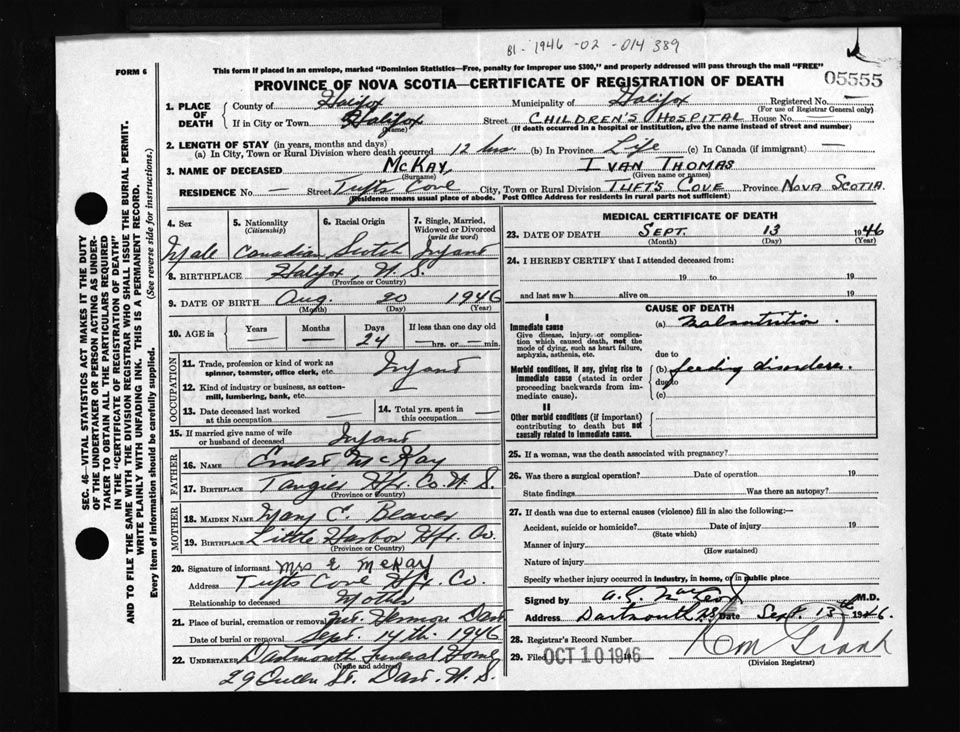 BI- 1946 -02 -014389
FORM 6
This form if placed in an envelope, marked "Dominion Statistics—Free, penalty for improper use $300," and properly addressed will pass through the mail "FREE"
PROVINCE OF NOVA SCOTIA—CERTIFICATE OF REGISTRATION OF DEATH
05555
1. PLACE OF DEATH County of Halifax Municipality of Halifax Registered No. —
(For use of Registrar General only)
If in City or Town Halifax Street CHILDREN'S HOSPITAL House No. —
(Name) (If death occurred in a hospital or institution, give the name instead of street and number)
2. LENGTH OF STAY (in years, months and days)
(a) In City, Town or Rural Division where death occurred 12 hrs. (b) In Province Life (c) In Canada (if immigrant) —
3. NAME OF DECEASED McKAY IVAN THOMAS
(Surname) (Given name or names)
RESIDENCE No — Street Tufts Cove City, Town or Rural Division TUFT'S COVE Province NOVA SCOTIA
(Residence means usual place of abode. Post Office Address for residents in rural parts not sufficient)
SEC. 46—VITAL STATISTICS ACT MAKES IT THE DUTY
OF THE UNDERTAKER OR PERSON ACTING AS UNDER-
TAKER TO OBTAIN ALL THE PARTICULARS REQUIRED
IN THE "CERTIFICATE OF REGISTRATION OF DEATH"
AND TO FILE THE SAME WITH THE DIVISION REGISTRAR WHO SHALL ISSUE THE BURIAL PERMIT.
WRITE PLAINLY WITH UNFADING INK. THIS IS A PERMANENT RECORD.
Every item of information should be carefully supplied. (See reverse side for instructions.)
4. Sex 5. Nationality (Citizenship) 6. Racial Origin 7. Single, Married, Widowed or Divorced (write the word)
Male Canadian Scotch Infant
8. BIRTHPLACE Halifax, N.S.
(Province or Country)
9. DATE OF BIRTH Aug. 20 1946
(Month) (Day) (Year)
10. AGE in Years Months Days If less than one day old
— — 24 —hrs. or —min.
OCCUPATION
11. Trade, profession or kind of work as spinner, teamster, office clerk, etc. Infant
12. Kind of industry or business, as cotton-mill, lumbering, bank, etc. —
13. Date deceased last worked at this occupation — 14. Total yrs. spent in this occupation —
15. If married give name of wife or husband of deceased Infant
FATHER
16. NAME Ernest McKay
17. BIRTHPLACE Tangier Hfx. Co. N.S.
(Province or Country)
MOTHER
18. MAIDEN NAME Mary C. Beaver
19. BIRTHPLACE Little Harbor Hfx. Co.
(Province or Country)
20. Signature of informant Mrs E McKay
Address Tufts Cove Hfx. Co.
Relationship to deceased Mother
21. Place of burial, cremation or removal Mt. Hermon Dart
Date of burial or removal Sept. 14th. 1946
22. UNDERTAKER Dartmouth Funeral Home
(Name and address)
29 Queen St. Dart. N.S.
MEDICAL CERTIFICATE OF DEATH
23. DATE OF DEATH SEPT. 13 1946
(Month) (Day) (Year)
24. I HEREBY CERTIFY that I attended deceased from:
19 to 19
and last saw h alive on 19
CAUSE OF DEATH
I
Immediate cause (a) Malnutrition.
Give disease, injury or complication which caused death, not the mode of dying, such as heart failure, asphyxia, asthenia, etc.
due to
Morbid conditions, if any, giving rise to immediate cause (stated in order proceeding backwards from immediate cause). (b) feeding disorders.
due to
(c)
II
Other morbid conditions (if important) contributing to death but not causally related to immediate cause.
25. If a woman, was the death associated with pregnancy?
26. Was there a surgical operation? Date of operation 19
State findings Was there an autopsy?
27. If death was due to external causes (violence) fill in also the following:—
Accident, suicide or homicide? Date of injury 19
(State which)
Manner of injury
(How sustained)
Nature of injury
Specify whether injury occurred in industry, in home, or in public place
Signed by M.D.
Address Dartmouth, N.S. Date Sept. 13th 1946.
28. Registrar's Record Number
29. Filed OCT 10 1946
(Division Registrar)